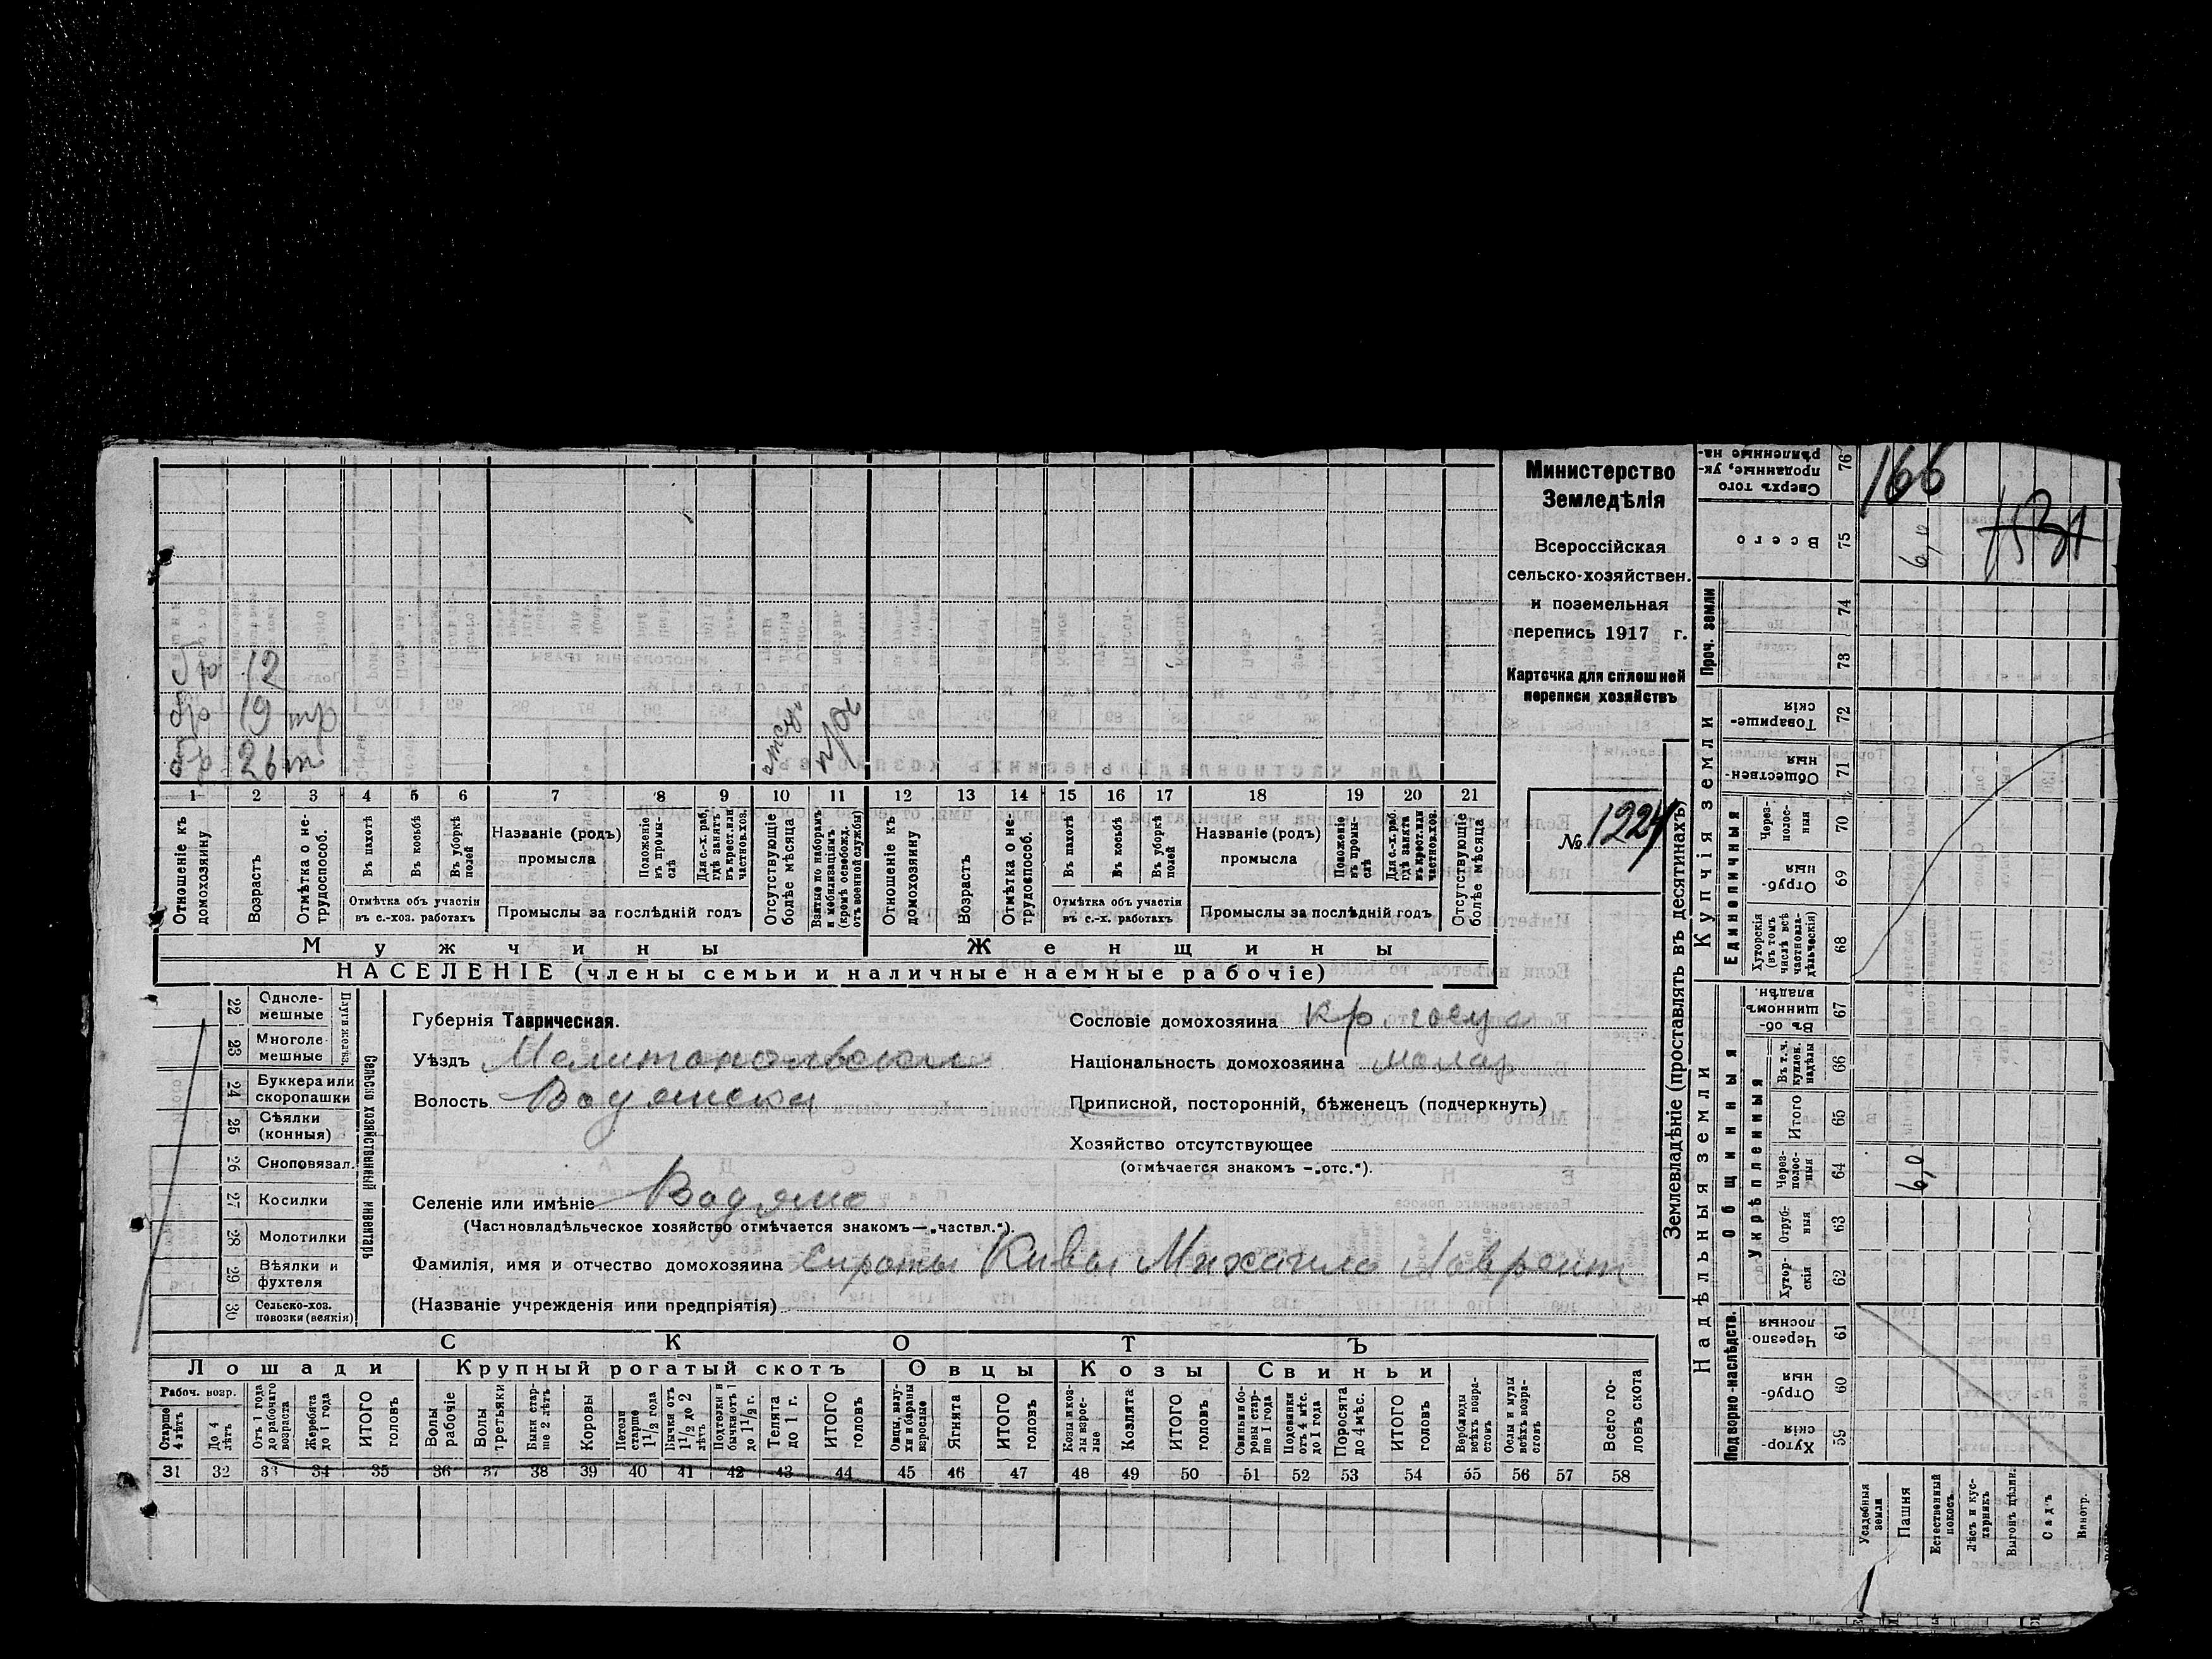 Министерство
Земледѣлія
Всероссійская
сельско-хозяйствен.
и поземельная
перепись 1917 г.
Карточка для сплошней
переписи хозяйствъ
№ 1224
12
19
26
1 2 3 4 5 6 7 8 9 10 11 12 13 14 15 16 17 18 19 20 21
Отношеніе къ домохозяину
Возрастъ
Отмѣтка о не-трудоспособ.
Въ пахотѣ
Въ косьбѣ
Въ уборкѣ полей
Отмѣтка объ участіи въ с.-хоз. работахъ
Названіе (родъ) промысла
Положеніе въ промы-слѣ
Для с.-х. раб. гдѣ занятъ въ крест. или частнов. хоз.
Промыслы за послѣдній годъ
Отсутствующіе болѣе мѣсяца
Взятые по наборамъ и мобилизаціямъ (кромѣ освобожд. отъ военной службы)
Отношеніе къ домохозяину
Возрастъ
Отмѣтка о не-трудоспособ.
Въ пахотѣ
Въ косьбѣ
Въ уборкѣ полей
Отмѣтка объ участіи въ с.-х. работахъ
Названіе (родъ) промысла
Положеніе въ промы-слѣ
Для с.-х. раб. гдѣ занята въ крест. или частнов. хоз.
Промыслы за послѣдній годъ
Отсутствующіе болѣе мѣсяца
Мужчины
Женщины
НАСЕЛЕНІЕ (члены семьи и наличные наемные рабочіе)
22 Одноле-мешные
23 Многоле-мешные
24 Буккера или скоропашки
25 Сѣялки (конныя)
26 Сноповязал.
27 Косилки
28 Молотилки
29 Вѣялки и фухтеля
30 Сельско-хоз. повозки (всякія)
Сельско хозяйственный инвентарь
Губернія Таврическая.
Уѣздъ Мелитопольскій
Волость Водянская
Селеніе или имѣніе Водяно
(Частновладѣльческое хозяйство отмѣчается знакомъ—„частвл.“).
Фамилія, имя и отчество домохозяина Сироты Кивы Михаила Лаврент
(Названіе учрежденія или предпріятія)
Сословіе домохозяина кр.
Національность домохозяина малор
Приписной, посторонній, бѣженецъ (подчеркнуть)
Хозяйство отсутствующее
(отмѣчается знакомъ —„отс.“).
СКОТЪ
Лошади
Крупный рогатый скотъ
Овцы
Козы
Свиньи
Рабоч. возр.
Старше 4 лѣтъ
До 4 лѣтъ
Отъ 1 года до рабочаго возраста
Жеребята до 1 года
ИТОГО головъ
Волы рабочіе
Волы третьяки
Быки стар-ше 2 лѣтъ
Коровы
Нетели старше 1½ года
Бычки отъ 1½ до 2 лѣтъ
Подтелки и бычки отъ 1 до 1½ г.
Телята до 1 г.
ИТОГО головъ
Овцы, валу-хи и бараны взрослые
Ягнята
ИТОГО головъ
Козы и коз-лы взрос-лые
Козлята
ИТОГО головъ
Свиньи и бо-ровы стар-ше 1 года
Подсвинки отъ 4 мѣс. до 1 года
Поросята до 4 мѣс.
ИТОГО головъ
Верблюды всѣхъ возра-стовъ
Ослы и мулы всѣхъ возра-стовъ
Всего го-ловъ скота
31 32 33 34 35 36 37 38 39 40 41 42 43 44 45 46 47 48 49 50 51 52 53 54 55 56 57 58
Землевладѣніе (проставлять въ десятинахъ)
Купчія земли
Надѣльныя земли
Проч. земли
Единоличныя
Общинныя
Укрѣпленныя
Подворно-наслѣдств.
76 Сверхъ того проданные, ук-рѣпленные на-
75 Всего
74
73
72 Товарище-скія
71 Обществен-ныя
70 Через-полос-ныя
69 Отруб-ныя
68 Хуторскія (въ томъ числѣ всѣ частновла-дѣльческія)
67 Въ об-щинномъ владѣн.
66 Въ т. ч. куплен. надѣлы
65 Итого
64 Через-полос-ныя
63 Отруб-ныя
62 Хутор-скія
61 Черезпо-лосныя
60 Отруб-ныя
59 Хутор-скія
166
6,0
6,0
Усадебныя земли
Пашня
Естественный покосъ
Лѣсъ и кус-тарникъ
Выгонъ цѣлин.
Садъ
Виногр.